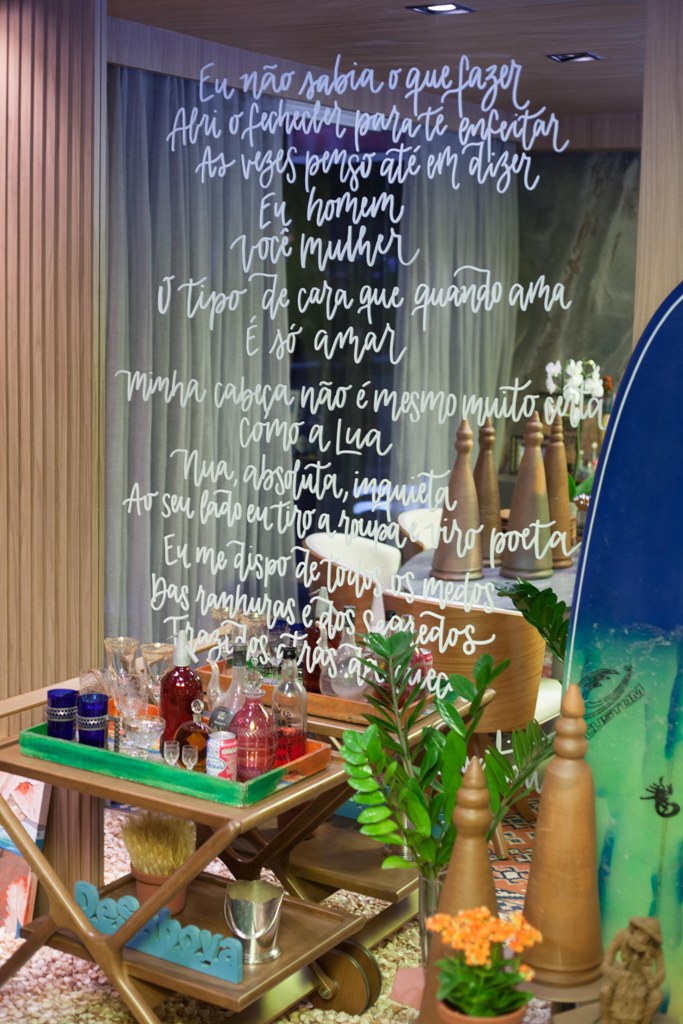 Eu não sabia o que fazer
Abri o fechecler para te enfeitar
As vezes penso até em dizer
Eu homem
você mulher
O tipo de cara que quando ama
É só amar
minha cabeça não é mesmo muito certa
Como a Lua
Nua, absoluta, inquieta
Ao seu lado eu tiro a roupa e viro poeta
Eu me dispo de todos os medos
Das ranhuras e dos segredos
Trazidos atrás da
Desaboya